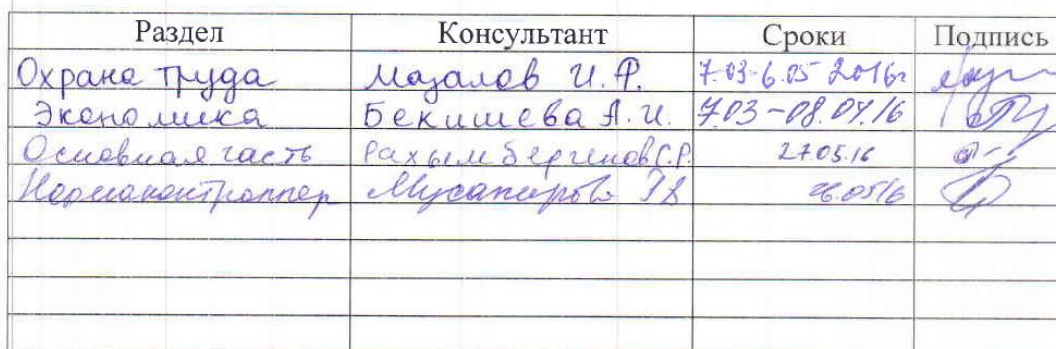 Раздел Консультант Сроки Подпись
Охрана труда Мазалов И.Ф. 7.03-6.05 2016г
Экономика Бекишева А.И. 7.03-08.04.16
Основная часть Рахымбергенов С.Р. 27.05.16
Нормоконтроллер 26.05.16